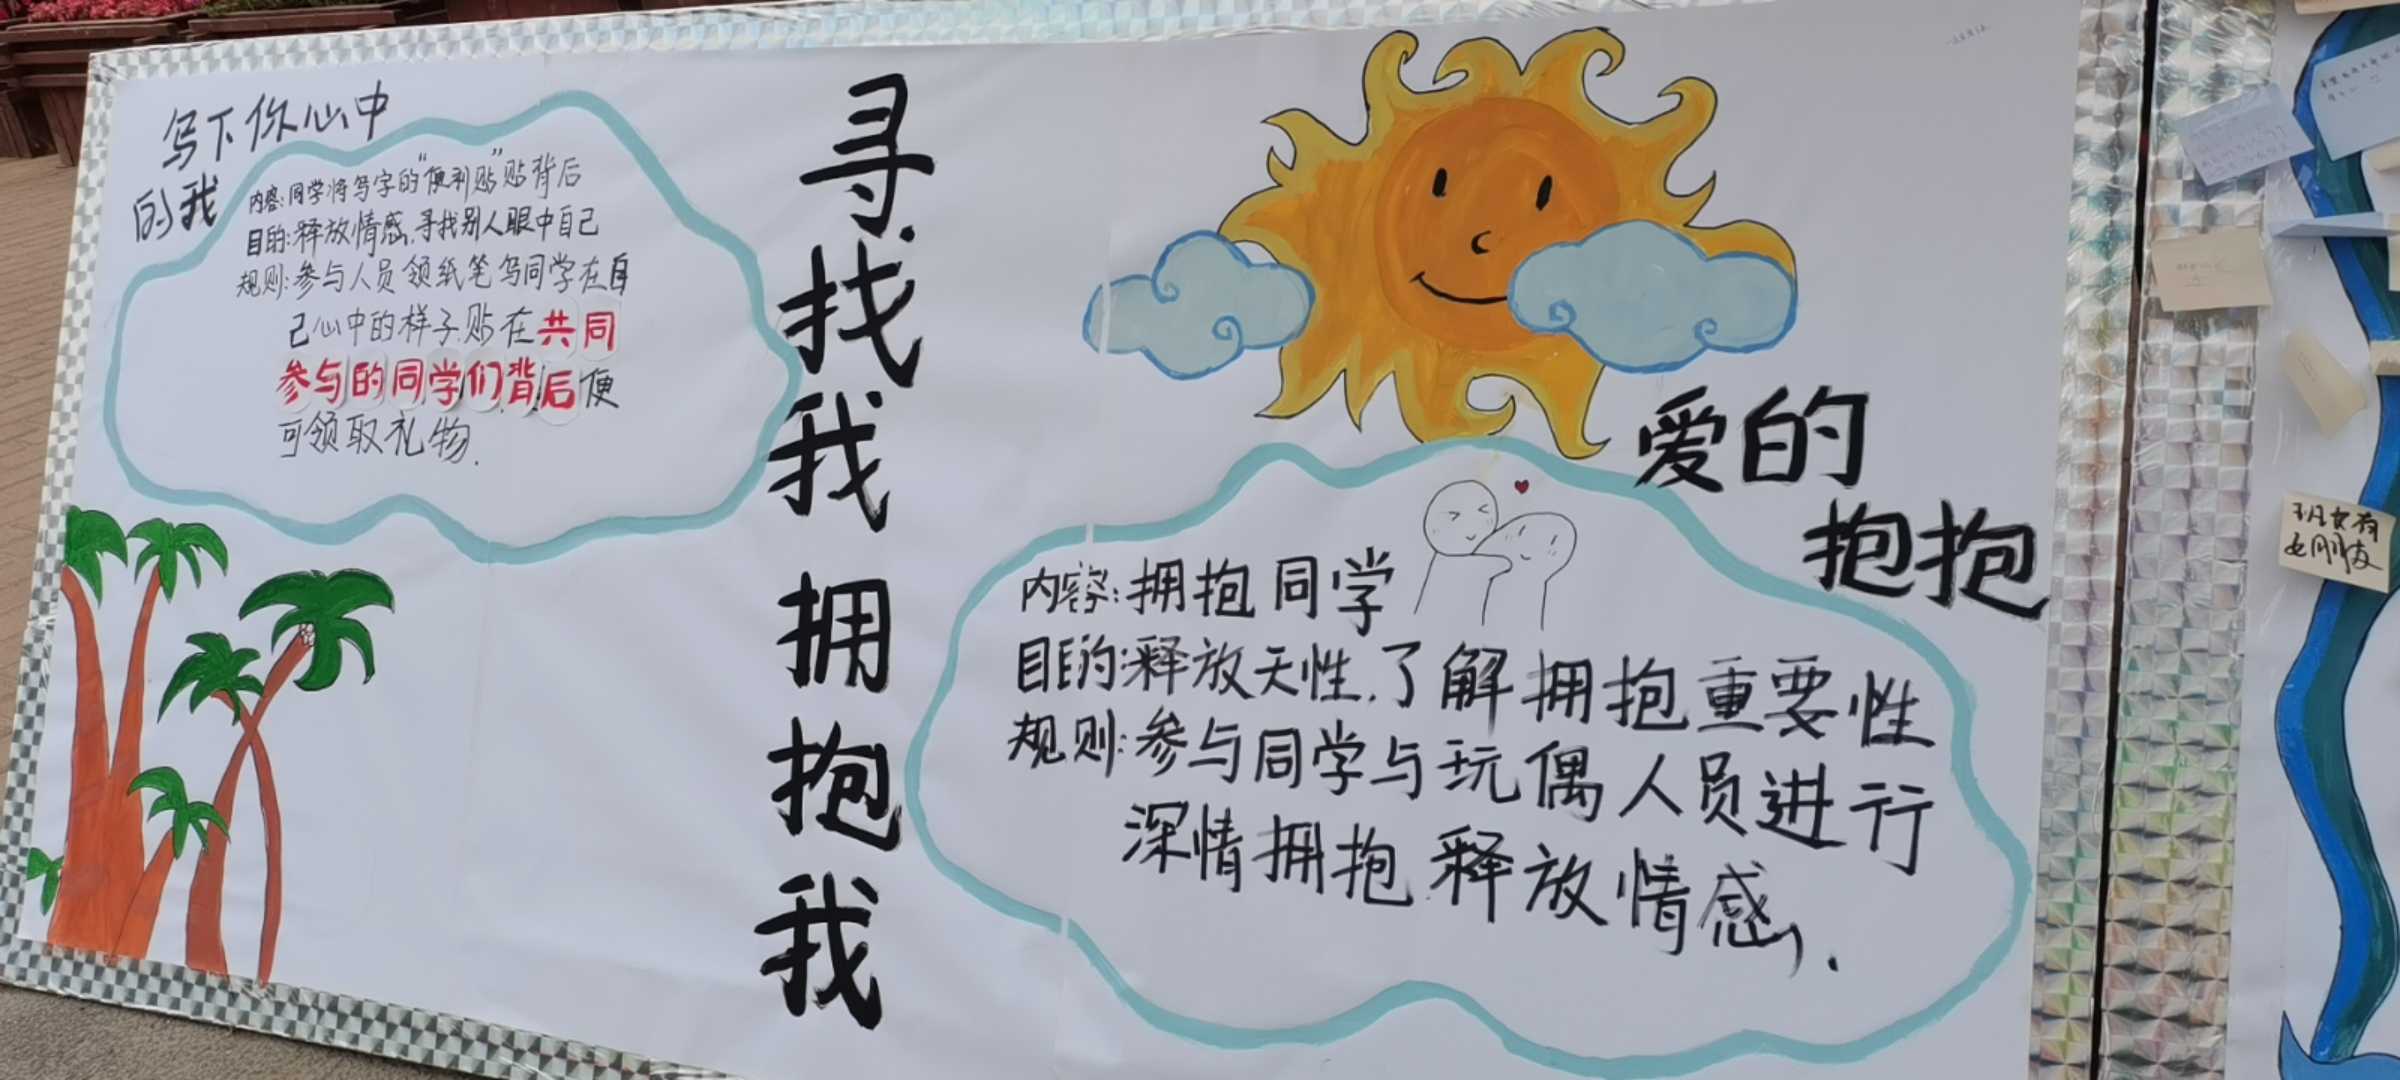 写下你心中
的我
内容:同学将写字的“便利贴”贴背后
目的:释放情感,寻找别人眼中自己
规则:参与人员领纸笔写同学在自
己心中的样子.贴在共同
参与的同学们背后便
可领取礼物.
寻找我拥抱我
爱的
抱抱
内容:拥抱同学
目的:释放天性,了解拥抱重要性
规则:参与同学与玩偶人员进行
深情拥抱.释放情感,.